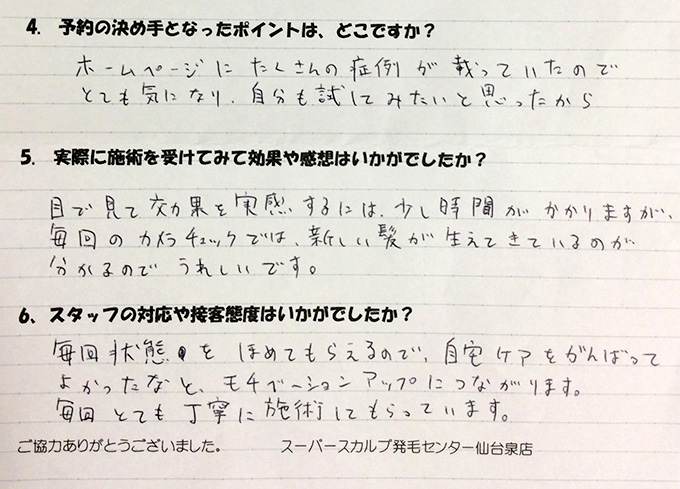 4. 予約の決め手となったポイントは、どこですか？
ホームページに たくさんの 症例 が 載っていたので
とても 気になり、自分も 試してみたいと 思ったから
5. 実際に施術を受けてみて効果や感想はいかがでしたか？
目で見て 効果を 実感するには、少し時間が かかりますが、
毎回の カメラチェックでは、新しい髪が 生えてきているのが
分かるので うれしいです。
6、スタッフの対応や接客態度はいかがでしたか？
毎回 状態を ほめてもらえるので、自宅ケアをがんばって
よかったなと、モチベーションアップにつながります。
毎回 とても 丁寧に 施術してもらっています。
ご協力ありがとうございました。 スーパースカルプ発毛センター仙台泉店